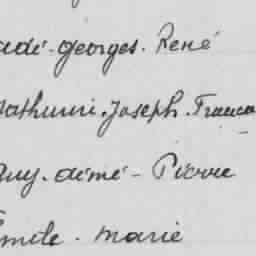 adé. georges. René
athurin. Joseph. Franco
guy. aimé - Pierre
Emile. marie